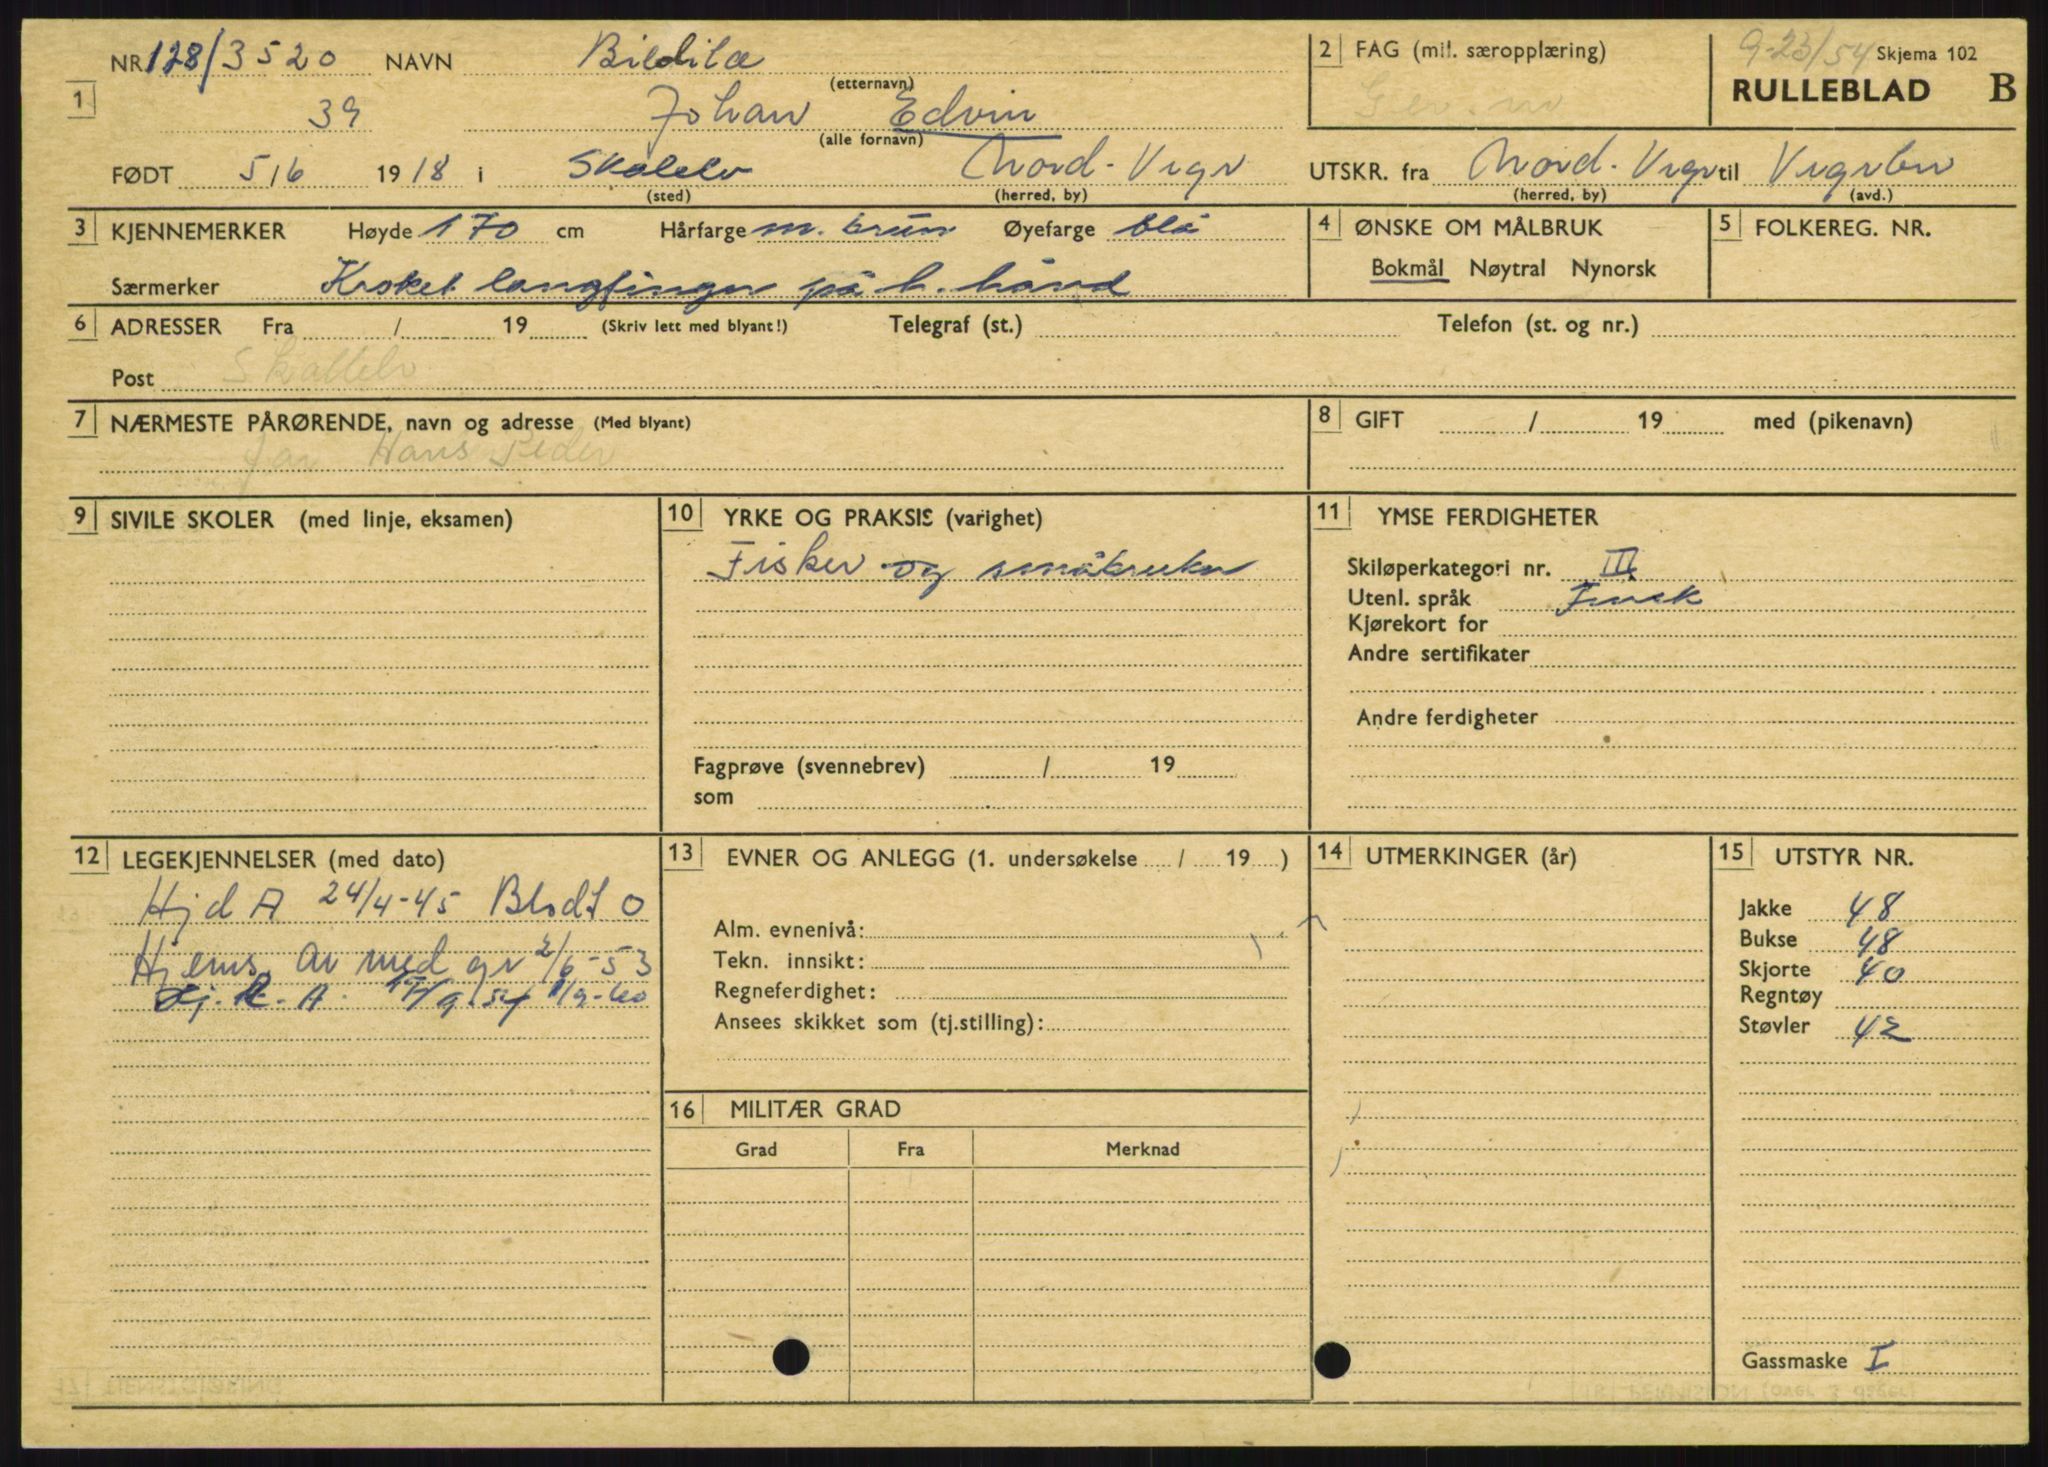 NR 128/3520 NAVN Bildila
(etternavn)
2 FAG (mil. særopplæring)
9-23/54 Skjema 102
RULLEBLAD B
1 39 Johan Edvin
(alle fornavn)
FØDT 5/6 1918 i Skalelv Nord-Vrgr
(sted) (herred, by)
UTSKR. fra Nord-Vrgr til Vrgrbn
(herred, by) (avd.)
3 KJENNEMERKER Høyde 170 cm Hårfarge m. brun Øyefarge blå
Særmerker Kroket langfinger på h. hånd
4 ØNSKE OM MÅLBRUK
Bokmål Nøytral Nynorsk
5 FOLKEREG. NR.
6 ADRESSER Fra / 19 (Skriv lett med blyant!) Telegraf (st.) Telefon (st. og nr.)
Post Skallelv
7 NÆRMESTE PÅRØRENDE, navn og adresse (Med blyant)
Far Hans Peder
8 GIFT / 19 med (pikenavn)
9 SIVILE SKOLER (med linje, eksamen)
10 YRKE OG PRAKSIS (varighet)
Fisker og småbruker
Fagprøve (svennebrev) / 19
som
11 YMSE FERDIGHETER
Skiløperkategori nr. III
Utenl. språk Finsk
Kjørekort for
Andre sertifikater
Andre ferdigheter
12 LEGEKJENNELSER (med dato)
Hjd A 24/4-45 Blodt O
Hjems. av med gr 2/6-53
Hj. R. A. 17/9.54 1/9-60
13 EVNER OG ANLEGG (1. undersøkelse / 19 )
Alm. evnenivå:
Tekn. innsikt:
Regneferdighet:
Ansees skikket som (tj.stilling):
14 UTMERKINGER (år)
15 UTSTYR NR.
Jakke 48
Bukse 48
Skjorte 40
Regntøy
Støvler 42
Gassmaske I
16 MILITÆR GRAD
Grad Fra Merknad